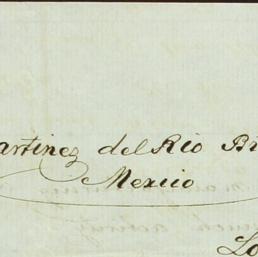 artinez del Rio B
Mexico
Lo